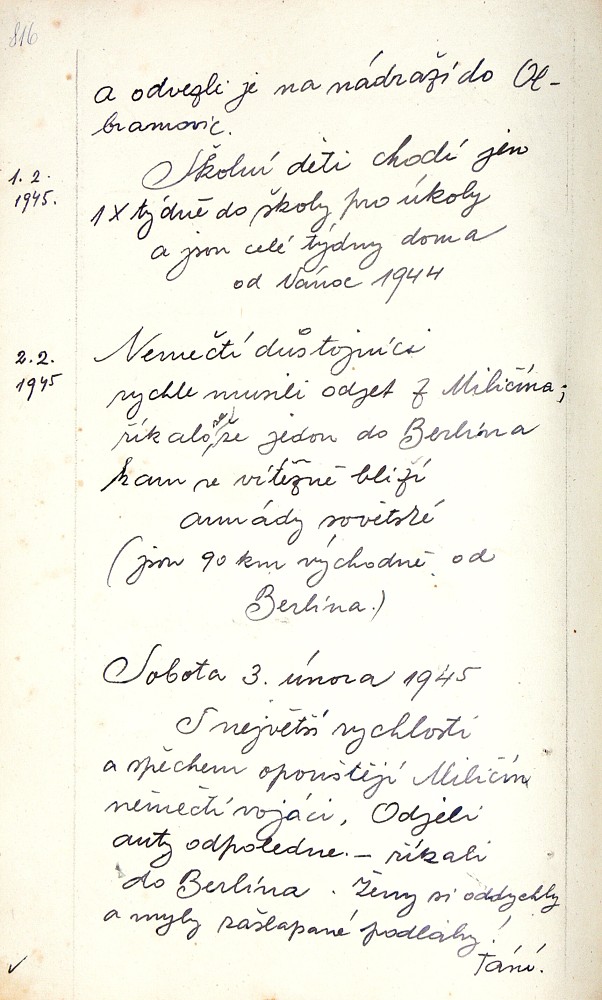 816
a odvezli je na nádraží do Ol-
bramovic.
1.2.
1945.
Školní děti chodí jen
1x týdně do školy pro úkoly
a jsou celé týdny doma
od Vánoc 1944
2.2.
1945
Nemečtí důstojníci
rychle musili odjet z Miličína;
říkalo se, že jedou do Berlína
kam se vítězně blíží
armády sovětské
(jsou 90 km východně od
Berlína.)
Sobota 3. února 1945
S největší rychlostí
a spěchem opouštějí Miličín
němečtí vojáci. Odjeli
auty odpoledne. – říkali
do Berlína. Ženy si oddychly
a myly zašlapané podlahy!
Tání.